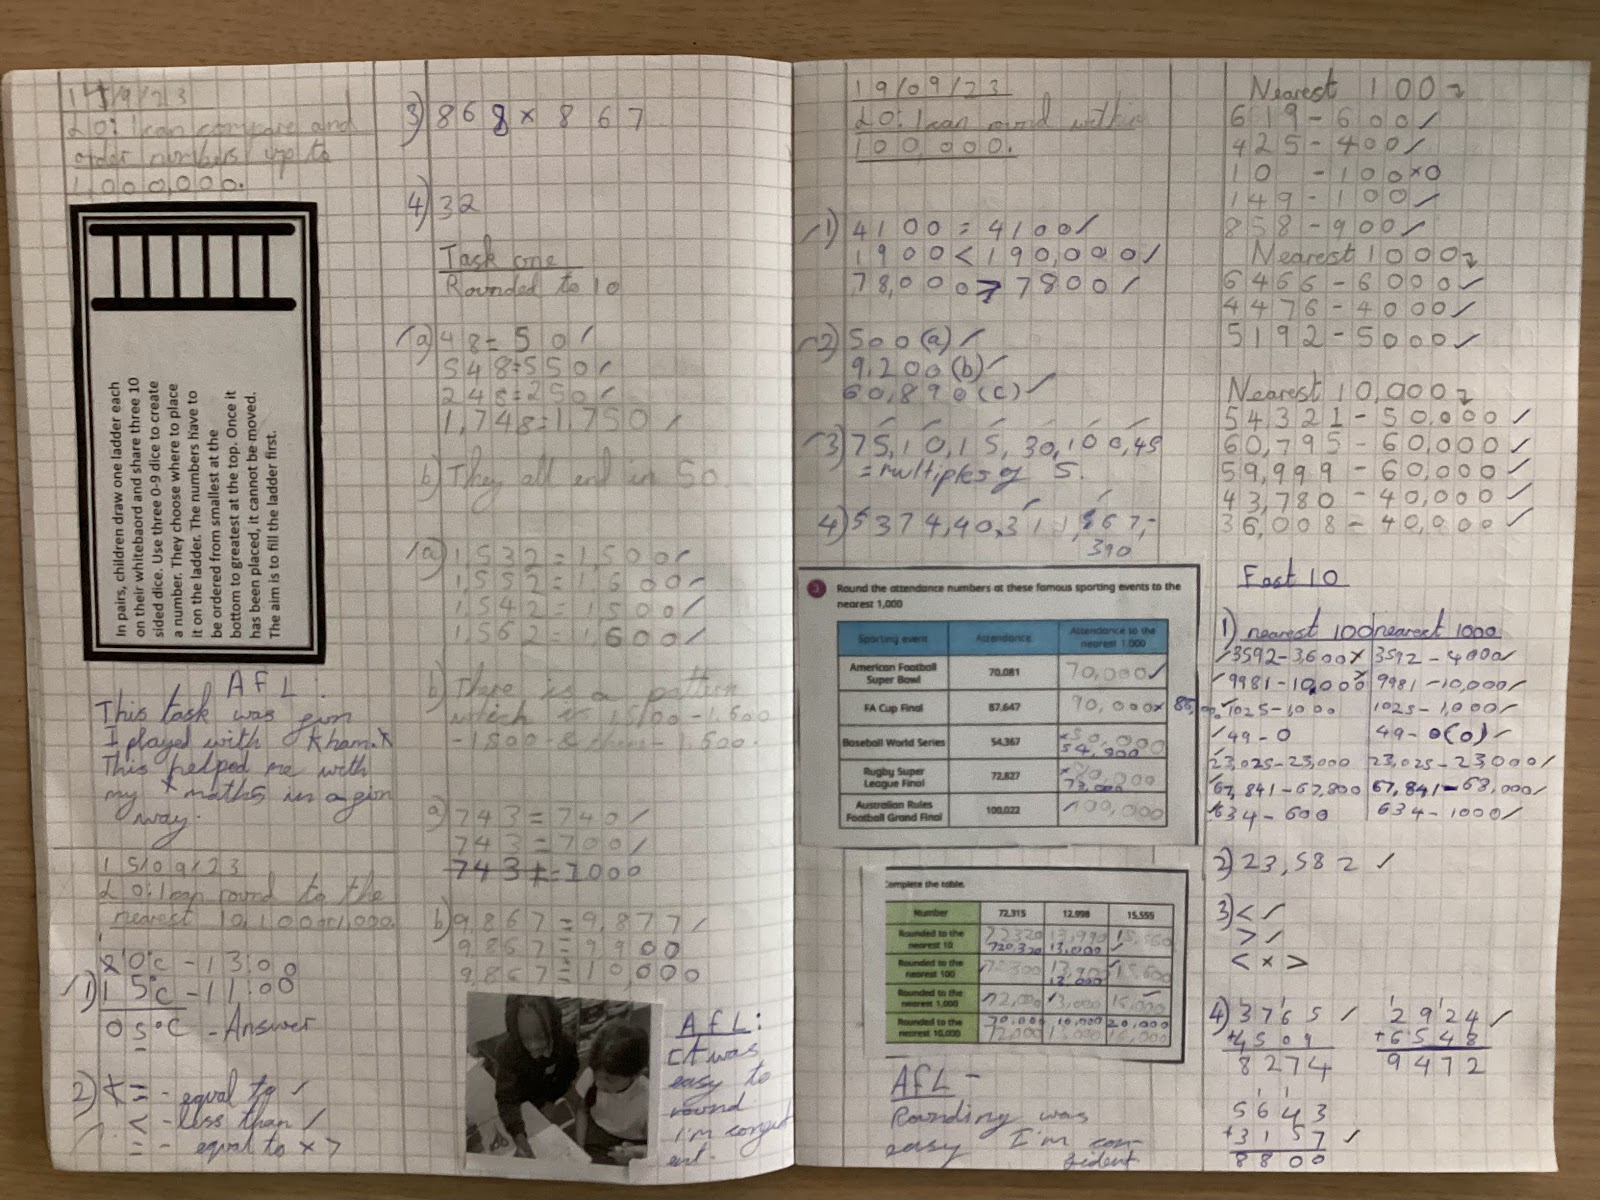 14/9/23
LO: I can compare and
order numbers up to
1,000,000.
In pairs, children draw one ladder each
on their whitebaord and share three 10
sided dice. Use three 0-9 dice to create
a number. They choose where to place
it on the ladder. The numbers have to
be ordered from smallest at the
bottom to greatest at the top. Once it
has been placed, it cannot be moved.
The aim is to fill the ladder first.
AfL:
This task was
I played with
This helped me with
my maths in a
way.
15/09/23
LO: I can round to the
nearest 10, 100 or 1,000.
20°c - 13:00
1) 15°c - 11:00
05°C - Answer
2) = - equal to ✓
< - less than
= - equal to × >
3) 868 × 867
4) 32
Task one
Rounded to 10
a) 48 = 50 ✓
548 = 550 ✓
248 = 250 ✓
1,748 = 1,750 ✓
b) They all end in 50.
a) 1,532 = 1,500 ✓
1,552 = 1,600 ✓
1,542 = 1,500 ✓
1,562 = 1,600 ✓
b) There is a pattern
which is 1,500 - 1,600
- 1500 - 1,500.
a) 743 = 740 ✓
743 = 700 ✓
743 = 1000
b) 9,867 = 9,877 ✓
9,867 = 9900
9,867 = 10,000
AfL:
It was
easy to
round
I'm
19/09/23
LO: I can round within
100,000.
1) 4100 = 4100 ✓
1900 < 190,000 ✓
78,000 > 7800 ✓
2) 500 (a) ✓
9,200 (b) ✓
60,890 (c) ✓
3) 75, 10, 15, 30, 100, 45
= multiples of 5.
4) 5374, 40,311, 367,
390
3 Round the attendance numbers at these famous sporting events to the
nearest 1,000
Sporting event Attendance Attendance to the
nearest 1,000
American Football
Super Bowl 70,081 70,000 ✓
FA Cup Final 87,647 90,000 ×
Baseball World Series 54,367 50,000
54,000
Rugby Super
League Final 72,827 70,000
73,000
Australian Rules
Football Grand Final 100,022 100,000
Complete the table.
Number 72,315 12,998 15,555
Rounded to the
nearest 10 72320 12,990 15,560
720,320 13,000 ✓
Rounded to the
nearest 100 72300 12,900 15,600
13,000
Rounded to the
nearest 1,000 72,000 13,000 16,000
Rounded to the
nearest 10,000 70,000 10,000 20,000
72,000 13,000 16,000
AfL -
Rounding was
easy I'm con-
fident
Nearest 100
619 - 600 ✓
425 - 400 ✓
10 - 100 × 0
149 - 100 ✓
858 - 900 ✓
Nearest 1000
6466 - 6000 ✓
4476 - 4000 ✓
5192 - 5000 ✓
Nearest 10,000
54,321 - 50,000 ✓
60,795 - 60,000 ✓
59,999 - 60,000 ✓
43,780 - 40,000 ✓
36,008 - 40,000 ✓
Fast 10
1) nearest 100 nearest 1000
3592 - 3,600 3592 - 4000 ✓
9981 - 10,000 9981 - 10,000 ✓
1025 - 1000 1025 - 1,000 ✓
49 - 0 49 - 0 (0) ✓
23,025 - 23,000 23,025 - 23000 ✓
67,841 - 67,800 67,841 - 68,000 ✓
634 - 600 634 - 1000 ✓
2) 23,582 ✓
3) < ✓
> ✓
< × >
4) 3765 ✓ 2924 ✓
+4509 +6548
8274 9472
5643
+3157 ✓
8800